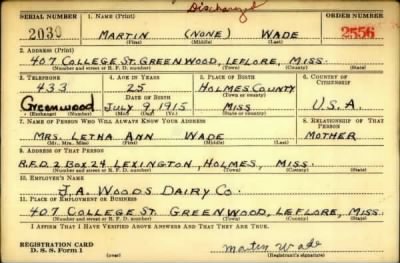 Discharged
SERIAL NUMBER 1. NAME (Print) ORDER NUMBER
2030 MARTIN (NONE) WADE 2556
(First) (Middle) (Last)
2. ADDRESS (Print)
407 COLLEGE ST. GREENWOOD, LEFLORE, MISS.
(Number and street or R. F. D. number) (Town) (County) (State)
3. TELEPHONE 4. AGE IN YEARS 5. PLACE OF BIRTH 6. COUNTRY OF CITIZENSHIP
433 25 HOLMES COUNTY
DATE OF BIRTH (Town or county)
Greenwood JULY 9, 1915 MISS U.S.A.
(Exchange) (Number) (Mo.) (Day) (Yr.) (State or country)
7. NAME OF PERSON WHO WILL ALWAYS KNOW YOUR ADDRESS 8. RELATIONSHIP OF THAT PERSON
MRS. LETHA ANN WADE MOTHER
(Mr., Mrs., Miss) (First) (Middle) (Last)
9. ADDRESS OF THAT PERSON
R.F.D. 2 BOX 24, LEXINGTON, HOLMES, MISS.
(Number and street or R. F. D. number) (Town) (County) (State)
10. EMPLOYER'S NAME
J.A. WOODS DAIRY CO.
11. PLACE OF EMPLOYMENT OR BUSINESS
407 COLLEGE ST. GREENWOOD, LEFLORE, MISS.
(Number and street or R. F. D. number) (Town) (County) (State)
I AFFIRM THAT I HAVE VERIFIED ABOVE ANSWERS AND THAT THEY ARE TRUE.
REGISTRATION CARD
D. S. S. Form 1 (over) Martin Wade
(Registrant's signature)